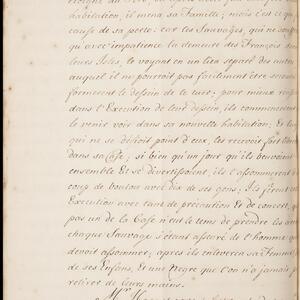 éloigné du Fort, ou après
habitation, il mena sa Famille; mais c'est ce qui
cause de sa perte: car les Sauvages, qui ne souffro
qu'avec impatience la demeure des François dans
leurs Isles, le voyant en un lieu séparé des autres
auquel il ne pourroit pas facilement être secouru
formerent le dessein de le tuer: pour mieux reuss
dans l'Execution de leur dessein, ils commencerent
le venir voir dans sa nouvelle habitation; Et lui
qui ne se défioit point d'eux, les recevoit fort bien
dans sa Case; si bien qu'un jour qu'ils beuvoient
ensemble Et se divertissoient, ils l'assommerent à
coup de bouton avec dix de ses gens; ils firent cette
Execution avec tant de précaution Et de concert, qu
pas un de la Case n'eut le tems de prendre les armes
chaque Sauvage s'étant assuré de l'homme qu
devoit assommer; après ils enleverent sa Femme
de ses Enfans, Et une Negre que l'on n'a jamais pu
retirer de leurs mains.
Mr